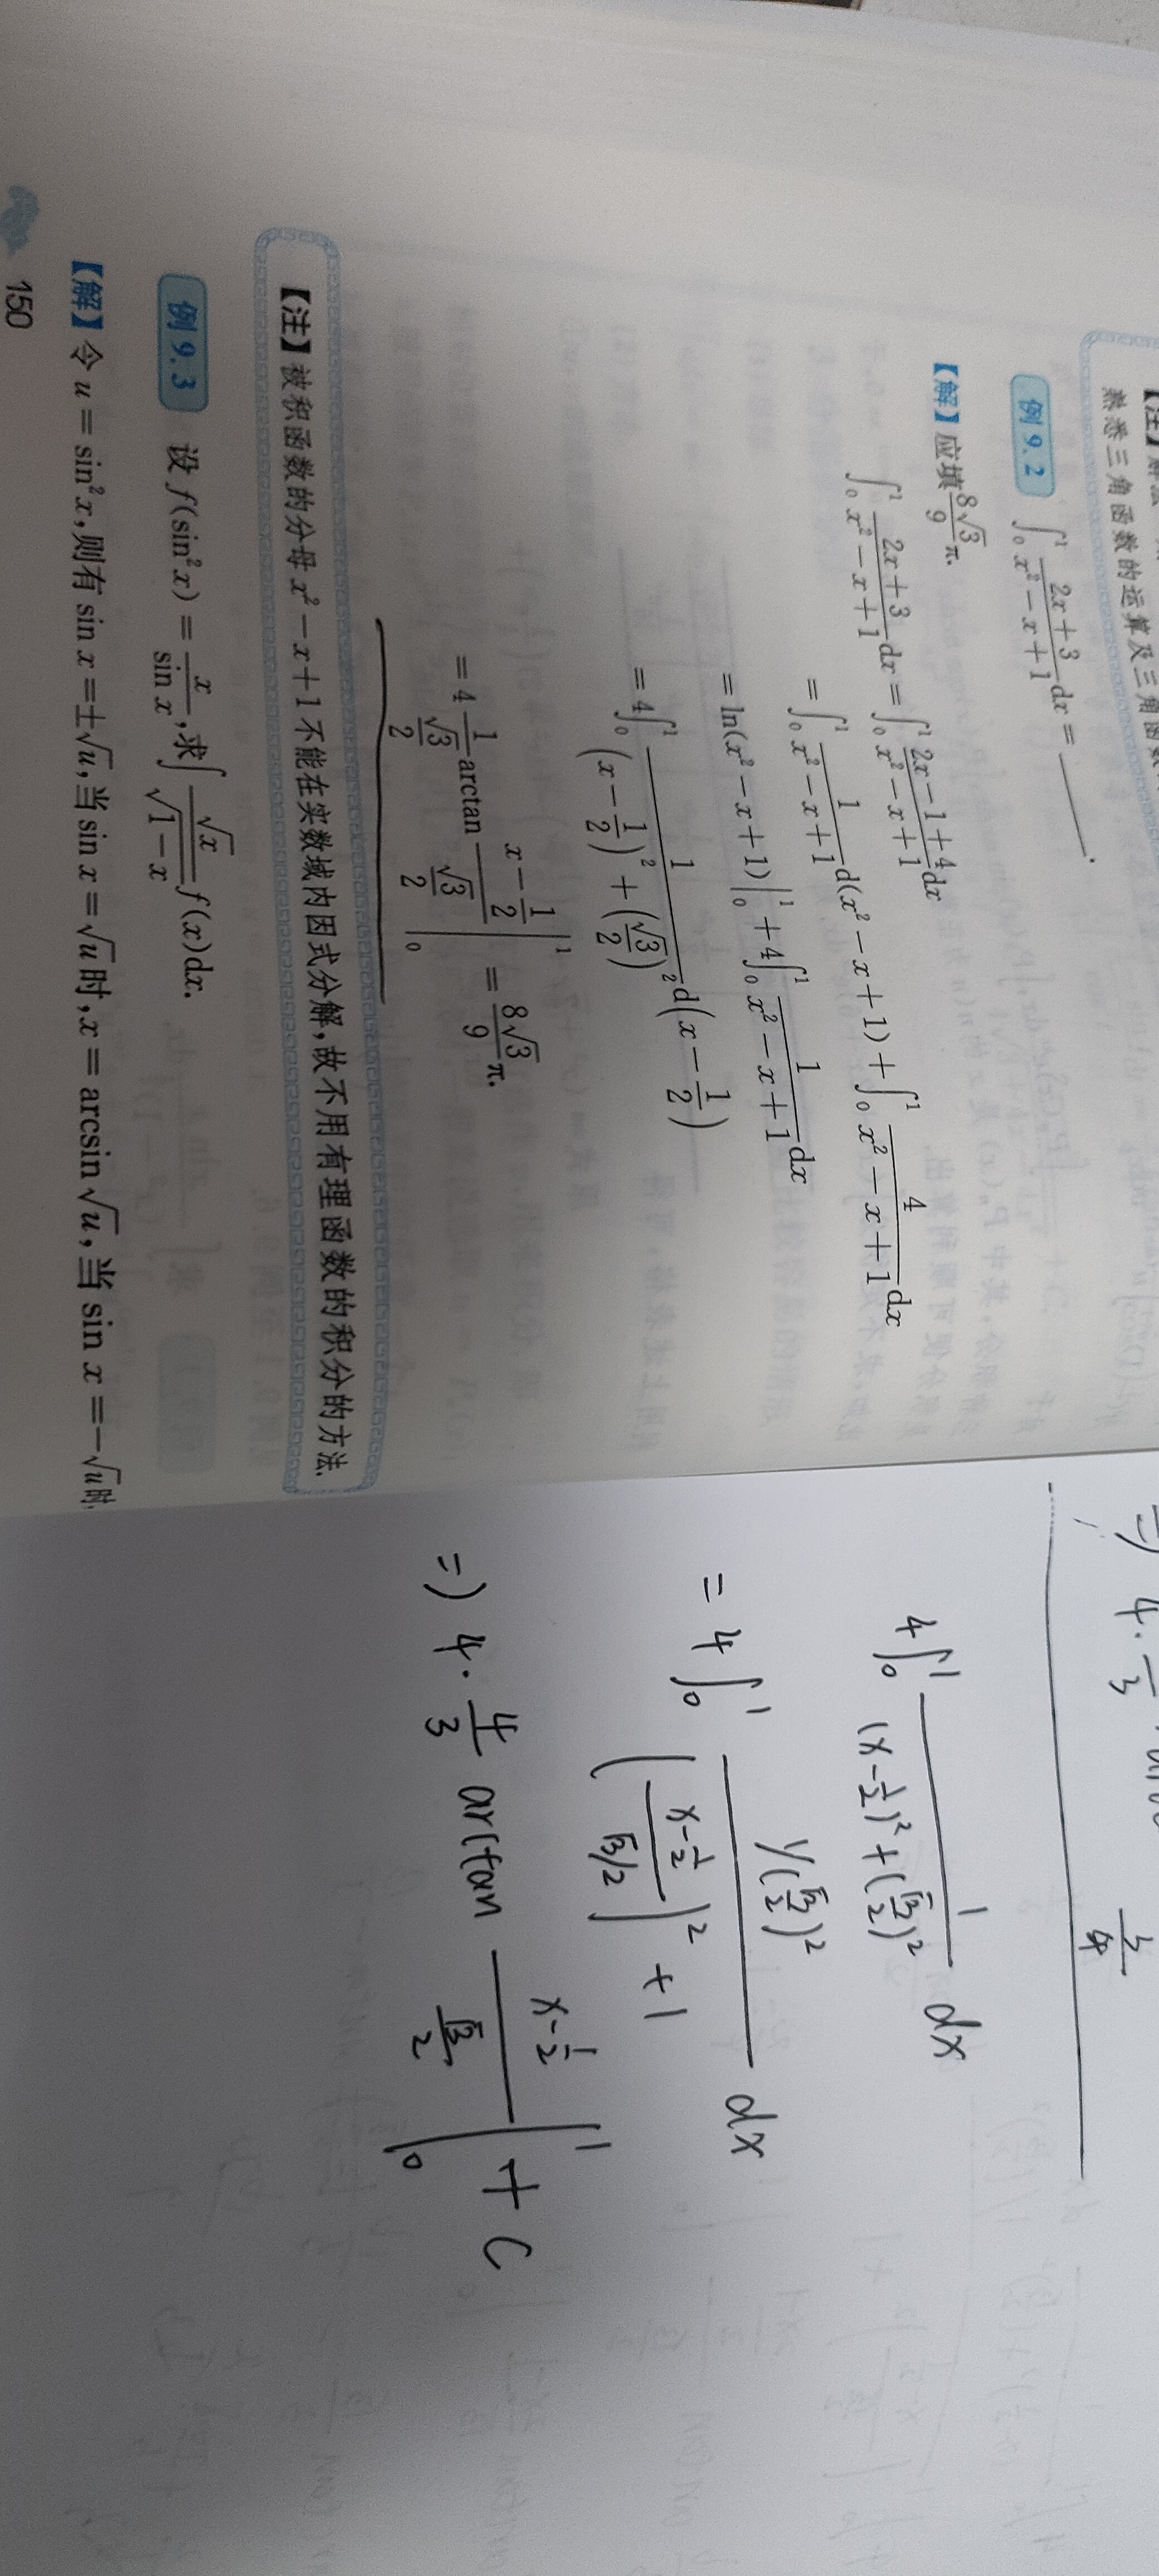 【注】解法
熟悉三角函数的运算及三角函数
例 9.2 ∫₀¹ (2x+3)/(x²−x+1) dx = ______.
【解】应填 8√3/9 π.
∫₀¹ (2x+3)/(x²−x+1) dx = ∫₀¹ (2x−1+4)/(x²−x+1) dx
= ∫₀¹ 1/(x²−x+1) d(x²−x+1) + ∫₀¹ 4/(x²−x+1) dx
= ln(x²−x+1)|₀¹ + 4∫₀¹ 1/(x²−x+1) dx
= 4∫₀¹ 1/((x−1/2)²+(√3/2)²) d(x−1/2)
= 4 1/(√3/2) arctan (x−1/2)/(√3/2) |₀¹ = 8√3/9 π.
【注】被积函数的分母 x²−x+1 不能在实数域内因式分解,故不用有理函数的积分的方法.
例 9.3 设 f(sin²x) = x/sin x,求∫ √x/√(1−x) f(x)dx.
【解】令 u = sin²x,则有 sin x = ±√u,当 sin x = √u 时,x = arcsin √u,当 sin x = −√u 时,
150
=) 4·
4∫₀¹ 1/((x−1/2)²+(√3/2)²) dx
= 4∫₀¹ 1/(√3/2)² / (((x−1/2)/(√3/2))²+1) dx
=) 4·4/3 arctan (x−1/2)/(√3/2) |₀¹ + C